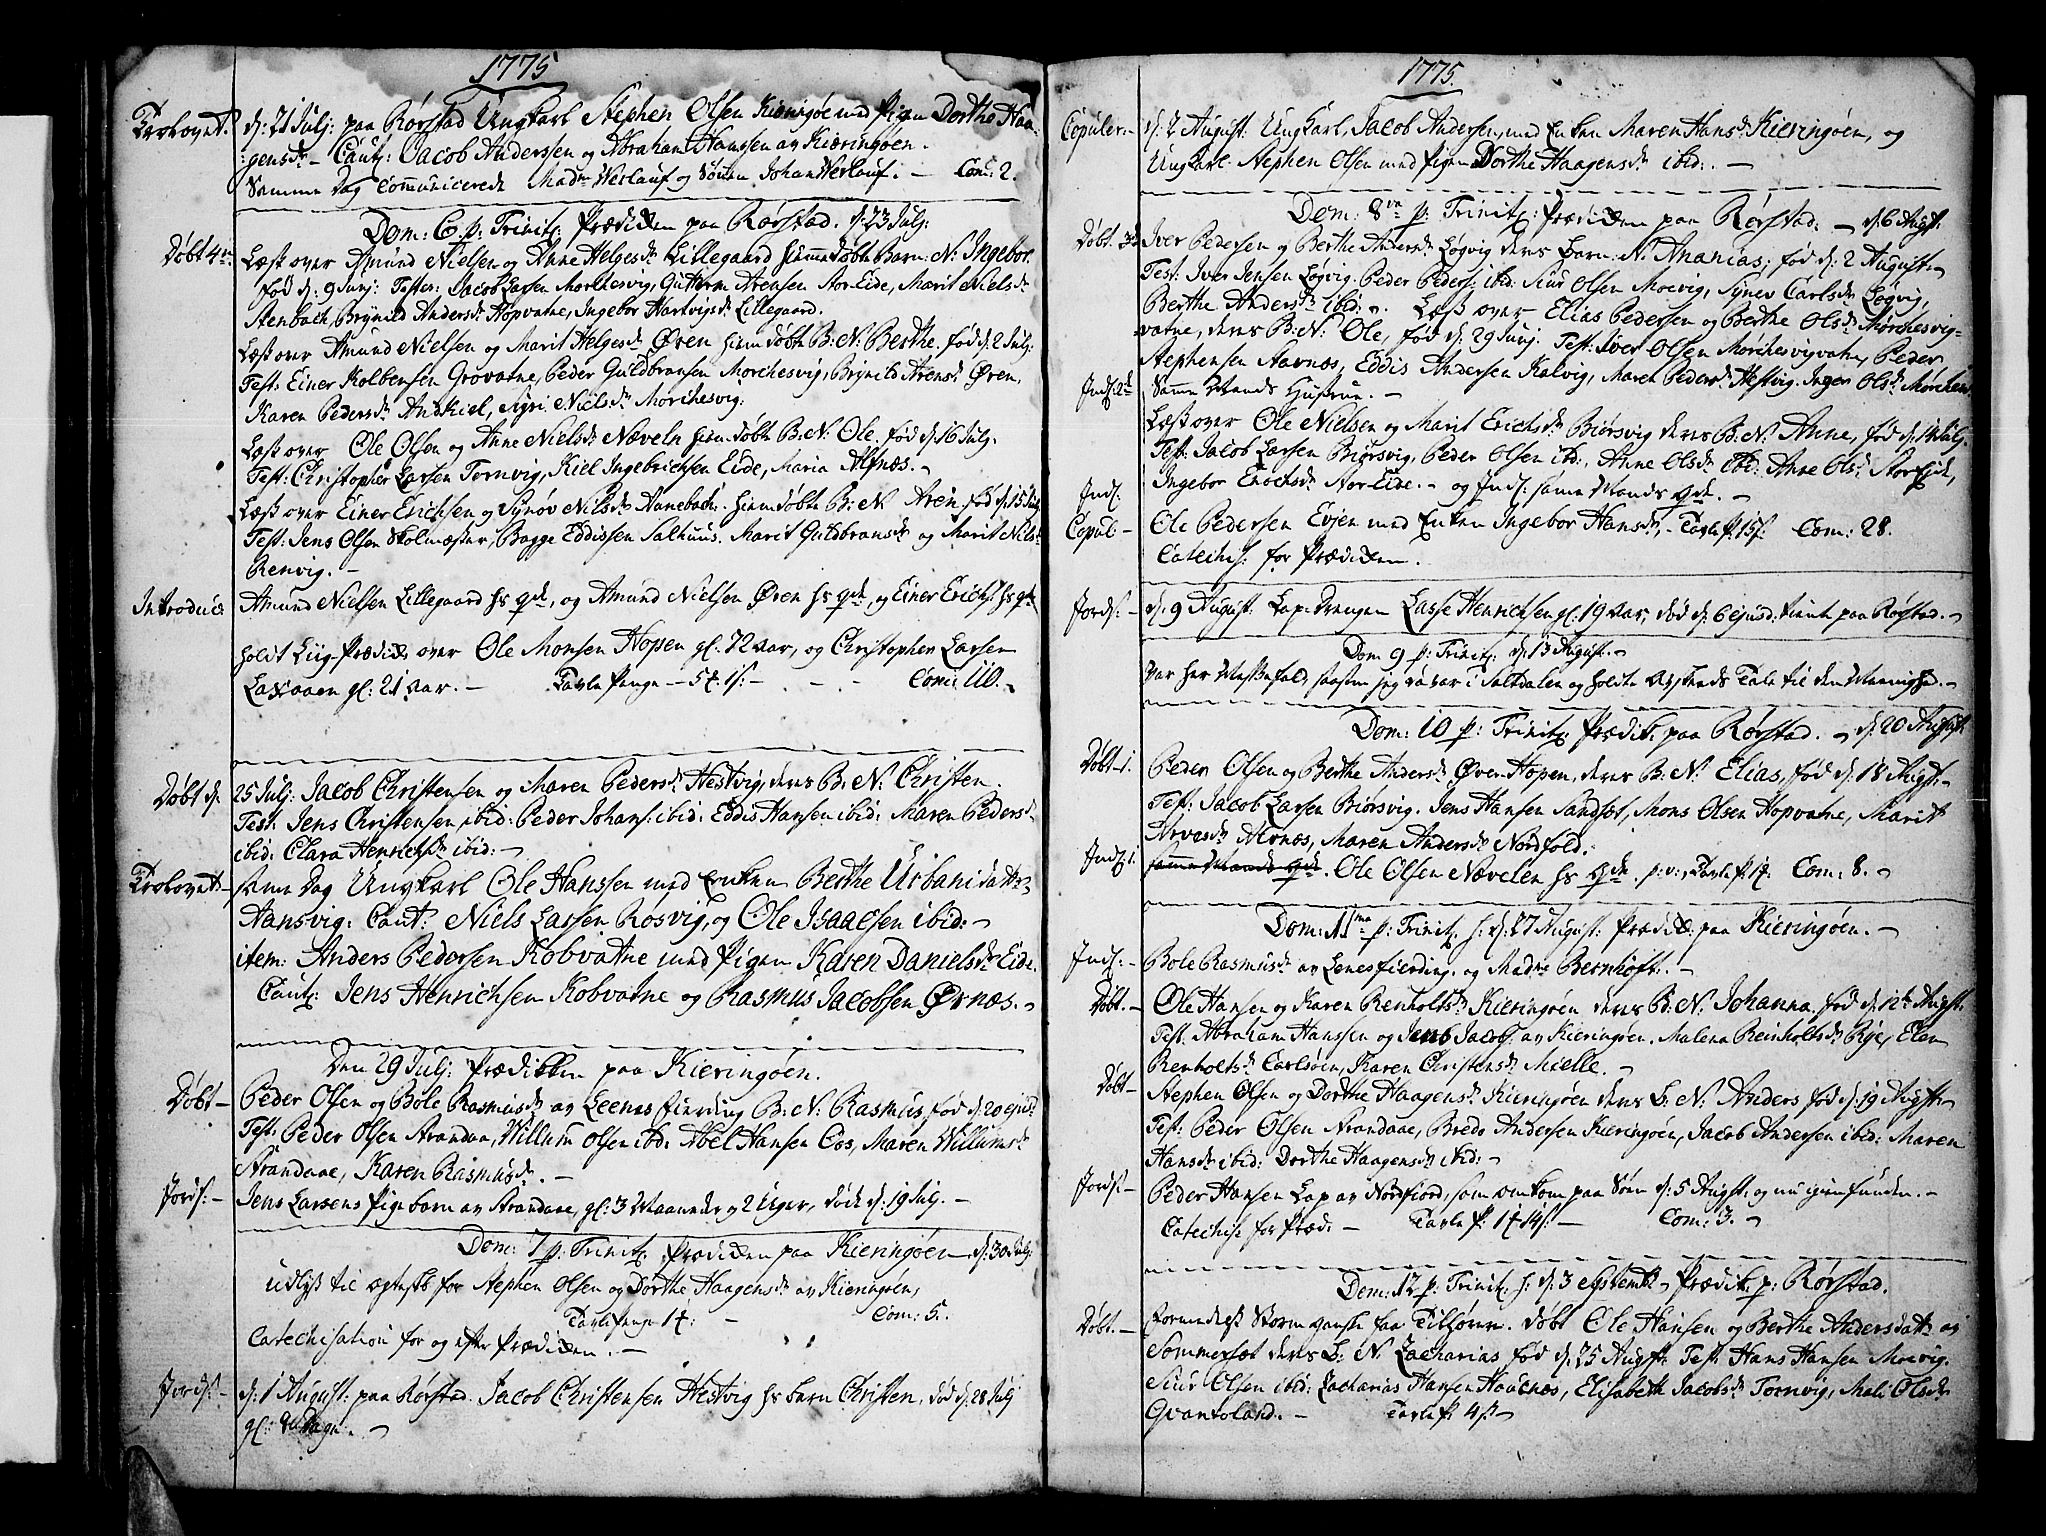 1775
Trolovet. d: 21 Julj: paa Rørstad Ungkarl Stephen Olsen Kieringøe med Pigen Dorthe Haa-
gensdr – Caut: Jacob Anderssen og Abraham Hanssen av Kieringøen.
Samme Dag Communicerede Madme Werlauf og Sønen Johan Werlauf. – Com: 2.
Dom: 6. p: Trinit: Prædiken paa Rørstad. d: 23 Julj:
Døbt 4re. Læst over Amund Nielsen og Anne Helgesdr Lillegaard hiemmedøbte Barn. N: Ingebor.
fød d: 9 Junj: Testes: Jacob Larsen Morkesvig, Guttorm Arensen Stor-Eide, Marit Nielsdr
Stenbach, Brynild Andersdr Hopvatne, Ingebor Hartvigsdr Lillegaard.
Læst over Amund Nielsen og Marit Helgesdr Øren hiemdøbte B: N: Berthe, fød d: 2 Julj:
Test: Einer Kolbensen Grovatne, Peder Guldbransen Morchesvig, Brynild Arensdr Øren,
Karen Pedersdr Andkiel, Sigri Nielsdr Morchesvig:
Læst over Ole Olsen og Anne Nielsdr Næveln hiem døbte B: N: Ole. fød d: 16 Julj:
Test: Christopher Larsen Tornvig, Kiel Ingebrichsen Eide, Maria Alfnæs. –
Læst over Einer Erichsen og Synøv Nielsdr Aanebach: hiemdøbte B: N: Aren. fød d: 15 Julj
Test: Jens Olsen Skolmæster, Bagge Eddissen Salhuus. Marit Guldbransdr og Marit Nielsdr
Renvig. –
Introduce Amund Nielsen Lillegaard hs qde, og Amund Nielsen Øren hs qde, og Einer Erichs: hs qde
Holdt Liig-Prædik over Ole Monsen Hopen gl: 72 Aar, og Christopher Larsen
Laxaaen gl: 21 Aar. – Tavle Penge – 5 – Com: 110.
Døbt d: 25 Julj: Jacob Christensen og Maren Pedersdr Hestvig, deres B: N: Christen.
Test: Jens Christensen ibid: Peder Johans: ibid: Eddis Hansen ibid: Maren Pedersdr
ibid: Clara Henrichsdr ibid: –
Trolovet – samme Dag Ungkarl Ole Hanssen med Enken Berthe Urbanidatter
Tansvig: Caut: Niels Larsen Rosvig, og Ole Isaacsen ibid: –
item: Anders Pedersen Kobvatne med Pigen Karen Danielsdr Eide.
Caut: Jens Henrichsen Kobvatne og Rasmus Jacobsen Ørnæs. –
Den 29 Julj: Prædikken paa Kieringøen.
Døbt – Peder Olsen og Bole Rasmusdr av Leenes fierding B: N: Rasmus, fød d: 20 ejusd:
Test: Peder Olsen Strandaae, Willum Olsen ibd: Abel Hansen Cos, Maren Willumsdr
Strandaae, Karen Rasmusdr. –
Jords: – Jens Larsens Pigebarn av Strandaae, gl: 3 Maaneder og 2 Uger, døde d: 19 Julj. –
Dom: 7 p: Trinit: Prædiken paa Kieringøen d: 30 Julj:
udlyst til Ægtesk: for Stephen Olsen og Dorthe Haagensdr av Kieringøen,
Tavle penge 1 – Com: 5.
Catechisation for og efter Prædiken. –
Jords: – d: 1 August: paa Rørstad. Jacob Christensen Hestvig hs barn Christen, død d: 28 Julj
gl: Dage. –
1775.
Copuler: – d: 2 August: Ungkarl, Jacob Andersen, med Enken Maren Hansdr Kieringøen, og
Ungkarl Stephen Olsen med Pigen Dorthe Haagensdr ibid: –
Dom: 8va p: Trinit: Prædiken paa Rørstad: – d: 6 Augst:
Døbt. 3de Iver Pedersen og Berthe Andersdr Løgvig deres Barn. N: Ananias, fød d: 2 August: –
Test: Iver Jensen Løgvig. Peder Peders: ibid: Siur Olsen Moevig, Synev Carlsdr Løgvig,
Berthe Andersdr ibid: – Læst over Elias Pedersen og Berthe Olsdr Mørchesvig-
vatne, deres B: N: Ole, fød d: 29 Junj: Test: Iver Olsen Mørchesvigvatne, Peder
Stephensen Aavnæs, Eddis Andersen Kalvig, Maren Pedersdr Hestvig. Inger Olsdr Mørches:
Indl: 2de Samme Mands Hustrue. –
Læst over Ole Nielsen og Marit Erichsdr Biørsvig deres B: N: Anne, fød d: 14 Julj:
Test: Jacob Larsen Biørsvig, Peder Olsen ibd:, Anne Olsdr ibd: Anne Olsdr Stor Eide,
Indl: Ingebor Enochsdr Stor-Eide. – og Indl: samme Mands qde. –
Copul: – Ole Pedersen Evjen med Enken Ingebor Hansdr, – Tavle p: 15 s: Com: 28.
Catechis: for Prædiken.
Jords: – d: 9 August: Lap-Drengen Lasse Henrichsen gl: 19 Aar, død d: 6 ejusd: tiente paa Rørstad. –
Dom 9 p: Trinit: d: 13 August: –
Var her Messefald, saasom jeg da var i Saltdalen og holdte Afskeeds Tale til den Meenighed. –
Dom: 10 p: Trinit: Prædik: paa Rørstad. – d: 20 August
Døbt – 1. Peder Olsen og Berthe Andersdr Øvre-Hopen, deres B: N: Elias, fød d: 18 Augst: –
Test: Jacob Larsen Biørsvig. Jens Hansen Sandset, Mons Olsen Hopvatne, Marit
Arvasdr Alvnæs, Maren Andersdr Nordfold.
Indl: 1. samme Mands qde. Ole Olsen Nævelen hs qde. p: v:, Tavle p: 1 Com: 8. –
Dom: 11ma p: Trinit: h: d: 27 August: Prædik: paa Kieringøen. –
Indl: – Bole Rasmusdr av Leenesfierding. og Madme Bernhoft. –
Døbt. – Ole Hansen og Karen Renholtsdr Kieringøen deres B: N: Johanna. fød d: 12te Augst:
Test: Abraham Hanssen og Jens Jacobs: av Kieringøen. Malena Reinholtsdr Rye, Elen
Renholtsdr Carlsøen, Karen Christensdr Mielle. –
Døbt – Stephen Olsen og Dorthe Haagensdr Kieringøen deres B: N: Anders fød d: 19 Augst: –
Test: Peder Olsen Strandaae, Bredo Andersen Kieringøen, Jacob Andersen ibid: Maren
Hansdr ibid: Dorthe Haagensdr ibid: –
Jords: – Peder Hansen Lap av Nordfiord, som omkom paa Søen d: 5 Augst: og nu igienfunden. –
Catechis: for Præd: – Tavle p: 1 14 s: – Com: 3. –
Dom: 12 p: Trinit: h: d: 3 Septembr – Prædik: p: Rørstad.
Døbt. – formedelst Storm ganske faa Tilhørere. Døbt Ole Hansen og Berthe Andersdatter av
Sommerset deres B: N: Zacharias fød d: 25 Augst: Test: Hans Hansen Moevig.
Siur Olsen ibid: Zacharias Hansen Houenæs, Elisabeth Jacobsdr Tornvig, Mali Olsdr
Qvantoland. – Tavle p: 4 s: –